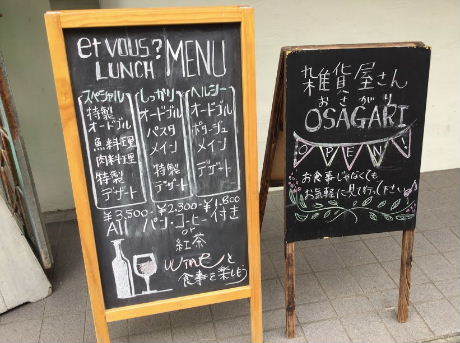 et VOUS?
LUNCH
MENU
スペシャル
特製
オードブル
魚料理
肉料理
特製
デザート
しっかり
オードブル
パスタ
メイン
特製
デザート
ヘルシー
オードブル
ポタージュ
メイン
デザート
¥3,500- ¥2,300- ¥1,800
All パン・コーヒー付き
or
紅茶
wineと
食事を楽しもう
雑貨屋さん
おさがり
OSAGARI
OPEN
お食事じゃなくても
お気軽に見て行って下さい